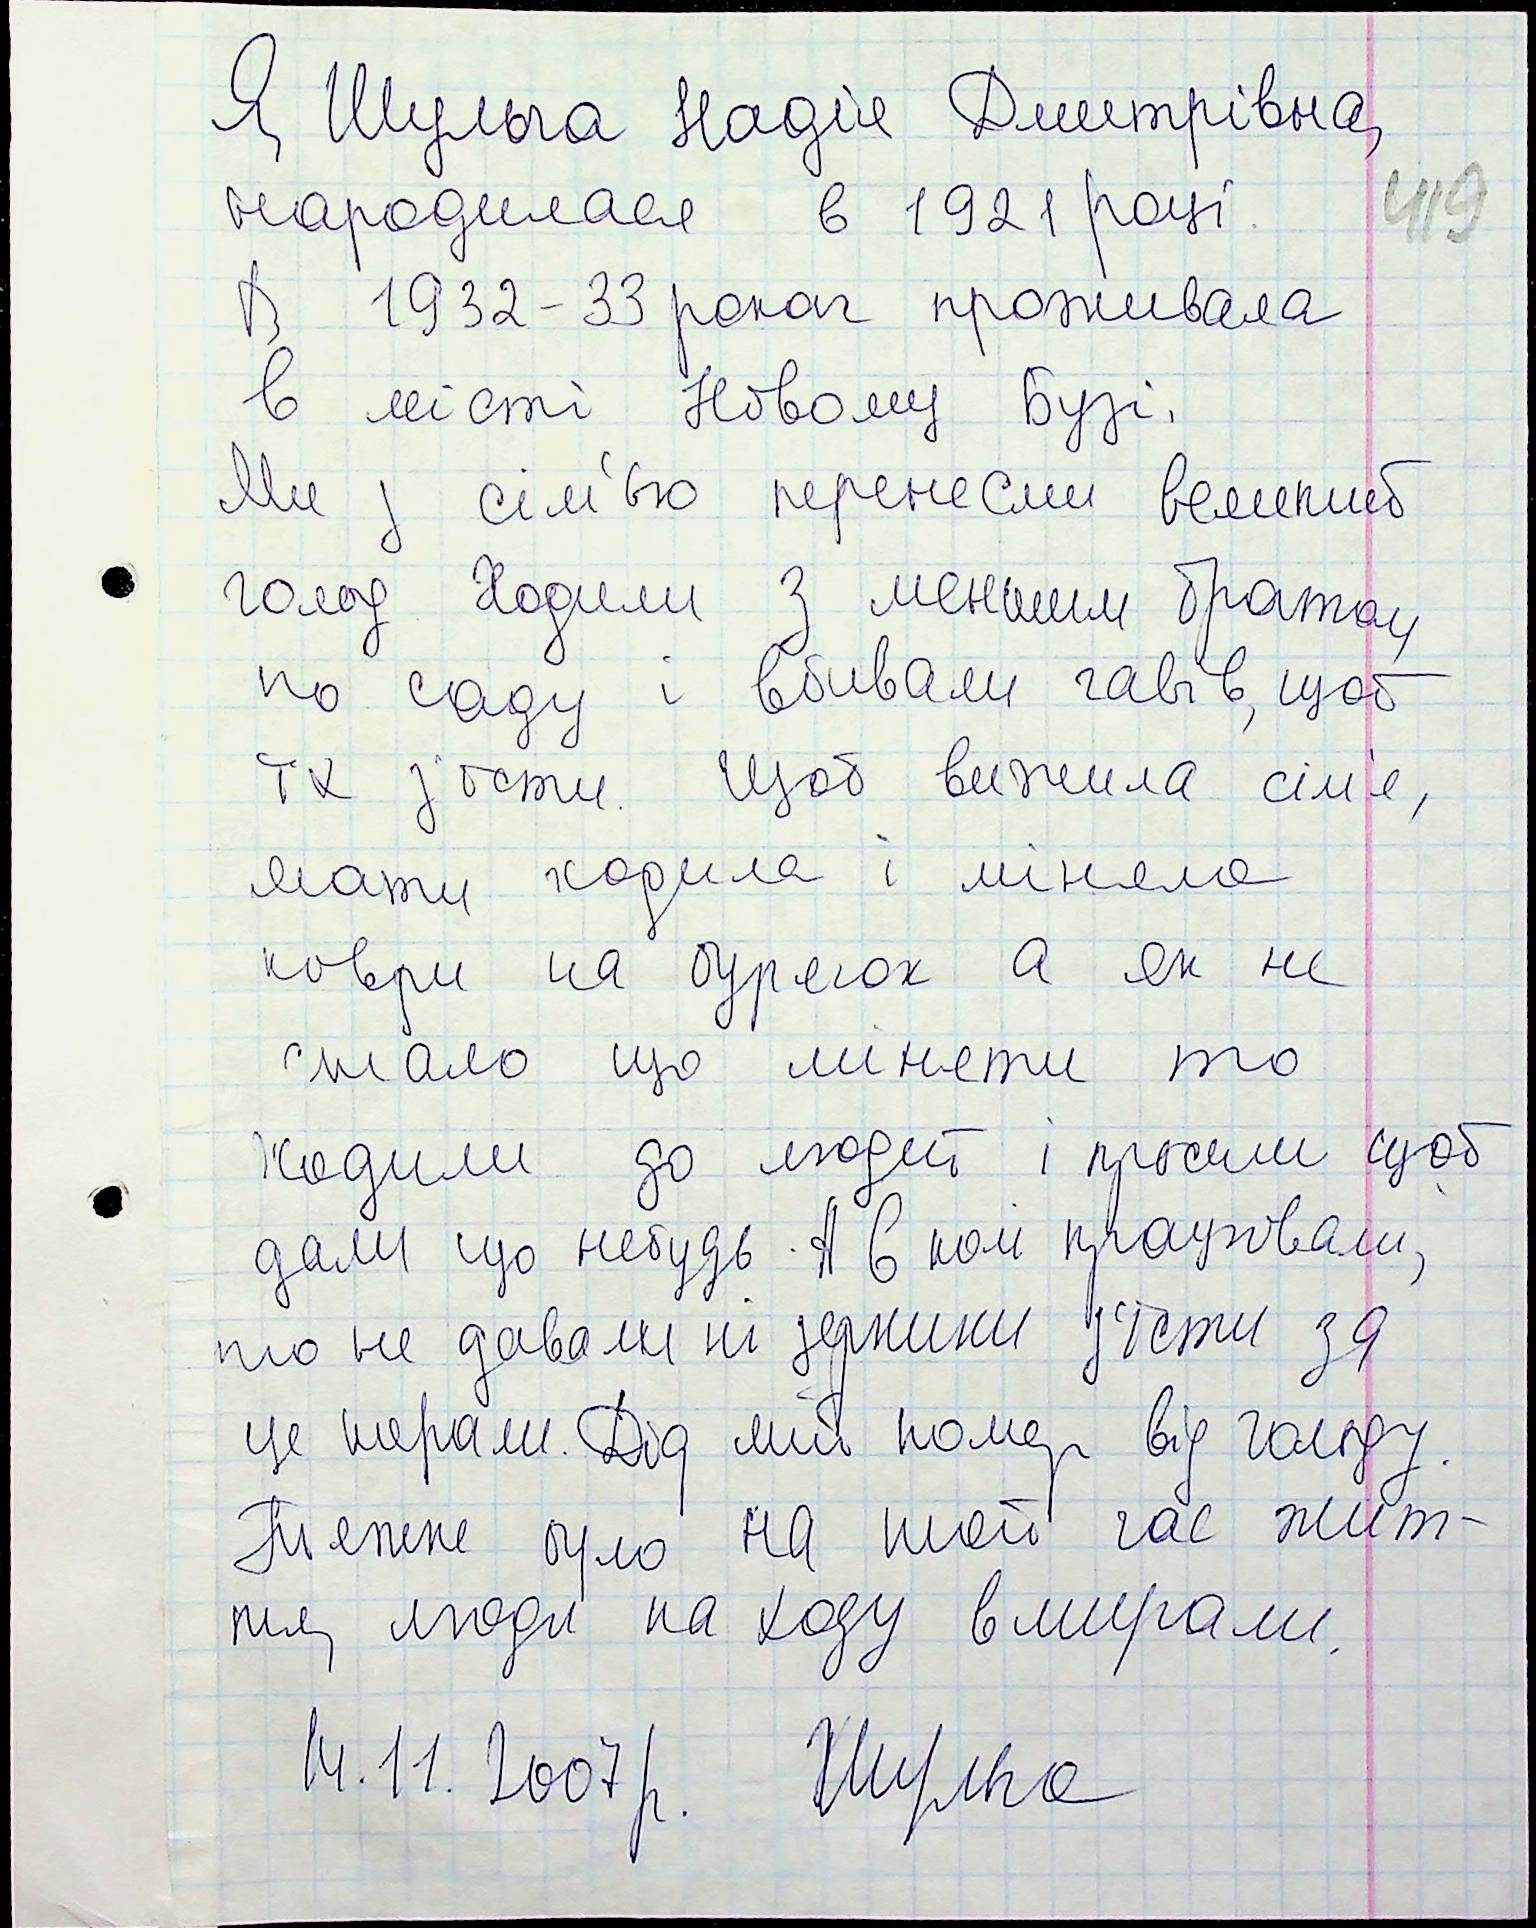 Я, Шульга Надія Дмитрівна,
народилася в 1921 році.
419
В 1932-33 роках проживала
в місті Новому Бузі.
Ми з сім'ью перенесли великиб
голод Ходили з меншим братом
по саду і вбивали гавів, щоб
їх з'їсти. Щоб вижила сім'я,
мати ходила і міняла
коври на бурячок а як не
стало що міняти то
ходили до людей і просили щоб
дали що небудь. А в полі працювали,
то не давали ні зернини з'їсти за
це карали. Дід мій помер від голоду.
Тяжке було на той час жит-
тя, люди на ходу вмирали.
14.11.2007р. Шульга